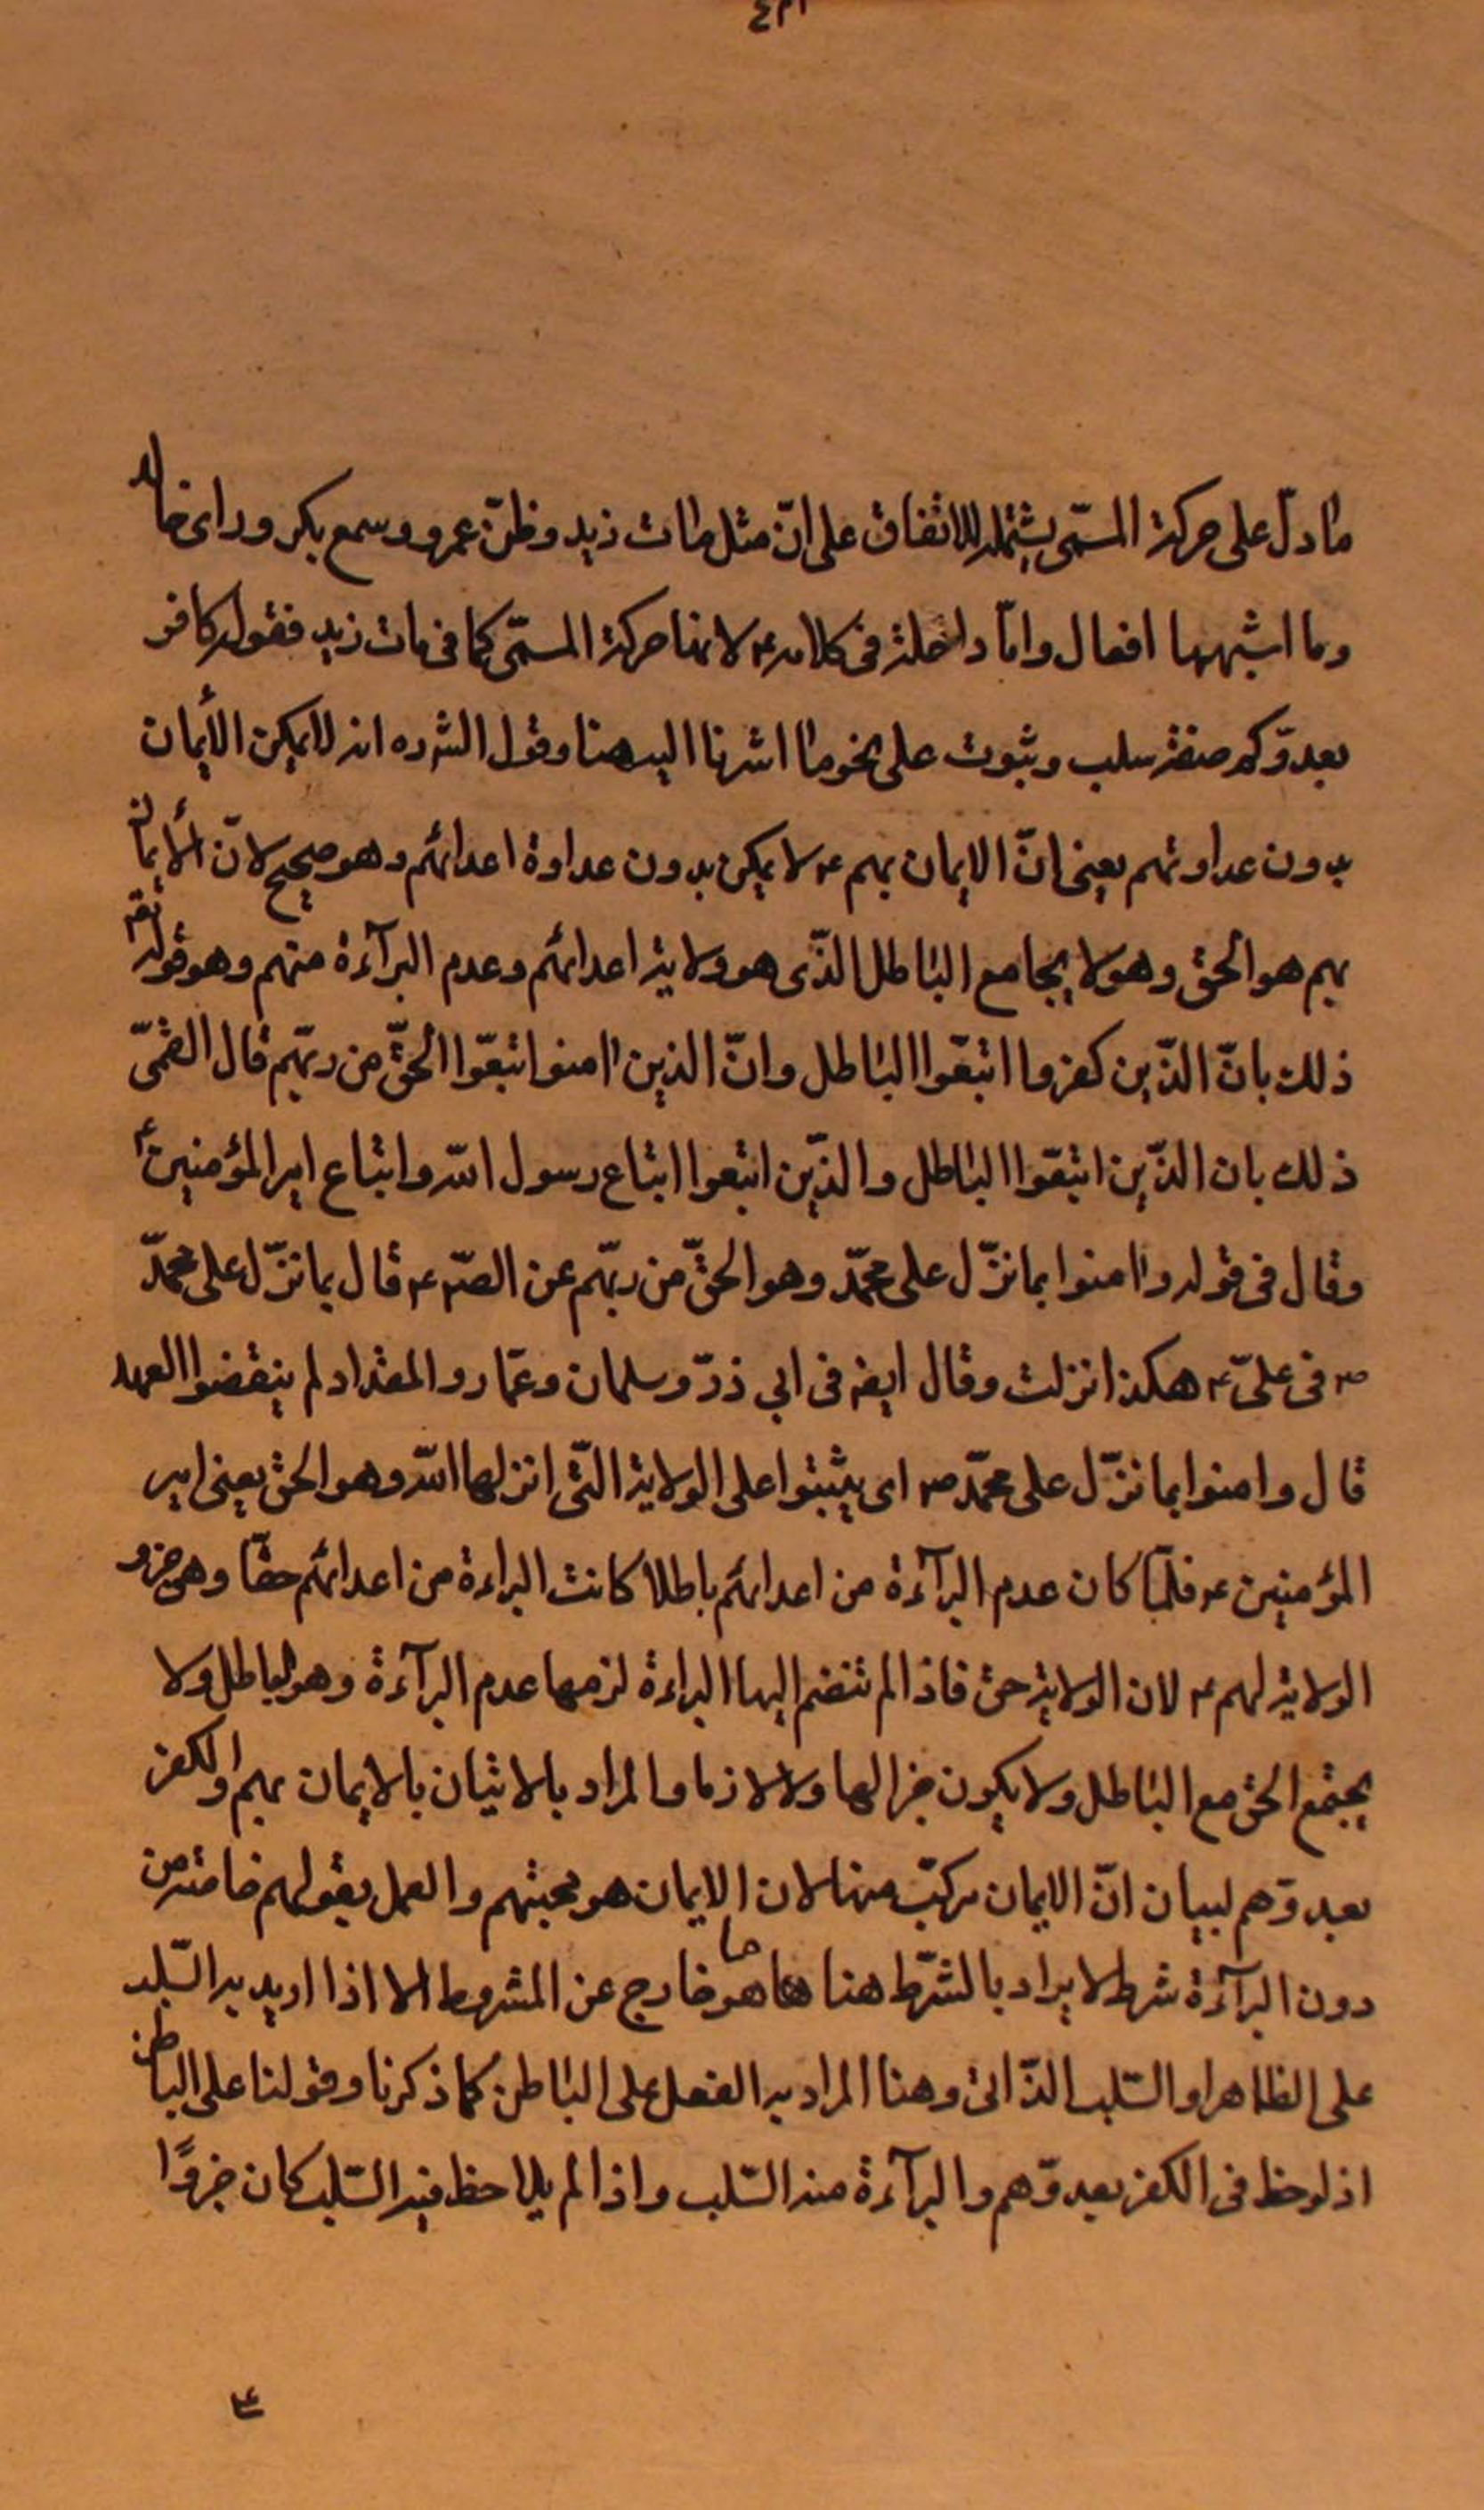 ما دلّ على حركة المسمّى يشتمله للاتفاق على انّ مثل مات زيد وظنّ عمرو وسمع بكر وراى خالد
وما اشبهها افعال وامّا داخلة في كلامه ع لانها حركة المسمّى كما في مات زيد فقوله كافر
بعدوّكم صفة سلب وثبوت على نحو ما اشرنا اليه هنا وقول الشره انه لا يمكن الأيمان
بدون عداوتهم يعني انّ الايمان بهم ع لا يمكن بدون عداوة اعدائهم وهو صحيح لانّ الأيمان
بهم هو الحق وهو لا يجامع الباطل الذّى هو ولاية اعدائهم وعدم البرآءة منهم وهو قوله تع
ذلك بانّ الذّين كفروا اتبعّوا الباطل وانّ الذين امنوا اتبعّوا الحقّ من ربّهم قال القمّى
ذلك بان الذّين اتبعّوا الباطل والذّين اتبعوا اتباع رسول الله واتباع امير المؤمنين ع
وقال في قوله وامنوا بما نزّل على محمّد وهو الحقّ من ربّهم عن الصّ ع قال بما نزّل على محمّد
ص في علىّ ع هكذا نزلت وقال ايض في ابي ذرّ وسلمان وعمّار والمقداد لم ينقضوا العهد
قال وامنوا بما نزّل على محمّد ص اى يثبتوا على الولاية التّى انزلها الله وهو الحق يعني امير
المؤمنين ع فلمّا كان عدم البرآءة من اعدائهم باطلا كانت البراءة من اعدائهم حقّا وهى جزو
الولاية لهم ع لان الولاية حق فاذا لم تنضم اليها البراءة لزمها عدم البرآءة وهو الباطل ولا
يجتمع الحق مع الباطل ولا يكون جزا لها ولا لازما والمراد بالاتيان بالايمان بهم والكفر
بعدوّهم لبيان انّ الايمان مركبّ منها لان الايمان هو محبتهم والعمل بقولهم خاصة من
دون البرآءة شرط لا يراد بالشرّط هنا ما هو خارج عن المشروط الا اذا اريد به السّلب
على الظاهر او السّلب الذّاتى وهنا المراد به الفعل على الباطن كما ذكرنا وقولنا على الباطن
اذ لوحظ في الكفر بعدوّهم والبرآءة منه السّلب واذا لم يلاحظ فيه السّلب كان جزوًا